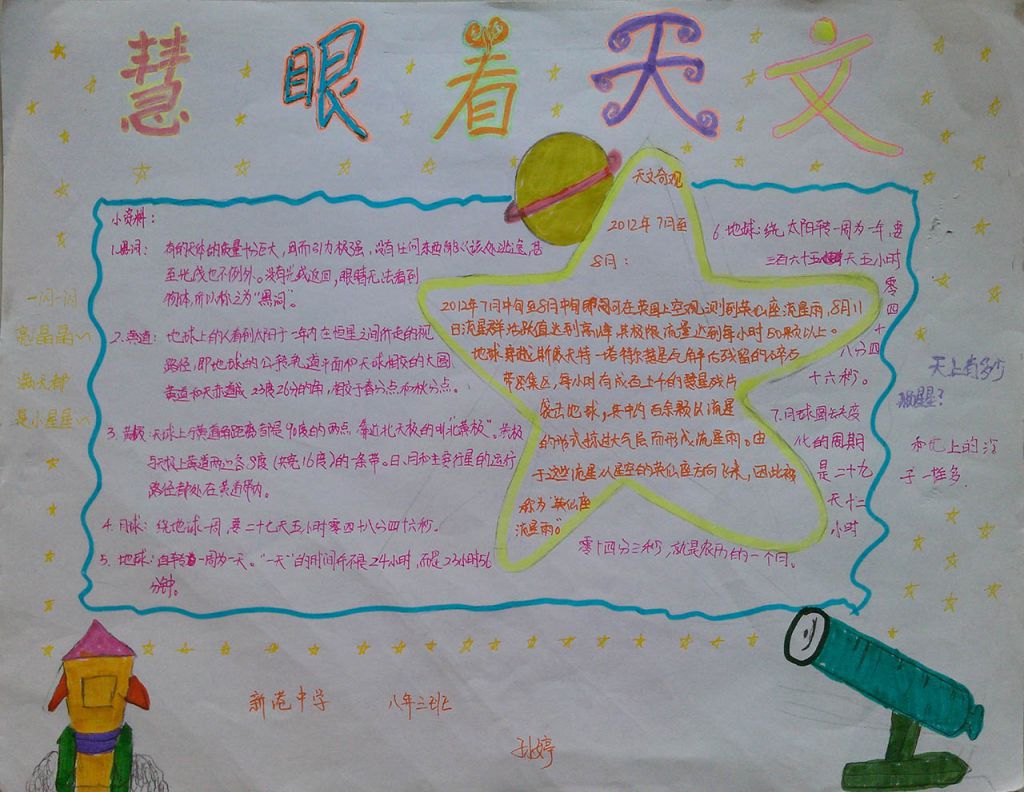 慧眼看天文
小资料：
1.黑洞：有的天体的质量十分巨大，因而引力极强，没有任何东西能从该处逃逸，甚
至光线也不例外。没有光线返回，眼睛无法看到
物体，所以称之为“黑洞”。
2.黄道：地球上的人看到太阳于一年内在恒星之间所走的视
路径，即地球的公转轨道平面和天球相交的大圆
黄道和天赤道成23度26分的角，相交于春分点和秋分点。
3.黄极：天球上与黄道角距离都是90度的两点，靠近北天极的叫“北黄极”。黄极
与天球上黄道两边各8度（共宽16度）的一条带。日、月和主要行星的运行
路径都处在黄道带内。
4.月球：绕地球一周，要二十七天五小时零四十八分四十六秒。
5.地球：自转一周为一天。“一天”的时间并不是24小时，而是23小时56
分钟。
天文奇观
2012年7月至
8月：
2012年7月中旬至8月中旬即可在英国上空观测到英仙座流星雨，8月11
日流星群活跃值达到高峰，其极限流量达到每小时50颗以上。
地球穿越斯威夫特—塔特尔彗星瓦解中所残留的碎石
带密集区，每小时有成百上千的彗星残片
袭击地球，其中约百余颗以流星
的形式掠过大气层而形成流星雨。由
于这些流星从星空的英仙座方向飞来，因此被
称为“英仙座
流星雨”。
6.地球：绕太阳转一周为一年，要
三百六十五天五小时
零
四
十
八分四
十六秒。
7.月球圆缺变
化的周期
是二十九
天十二
小时
零十四分三秒，就是农历的一个月。
一闪一闪
亮晶晶～
满天都
是小星星～
天上有多少
星星？
和地上的沙
子一样多.
新港中学 八年三班
孙婷